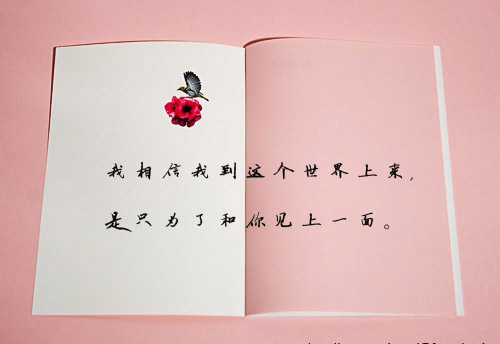 我相信我到这个世界上来，
是只为了和你见上一面。